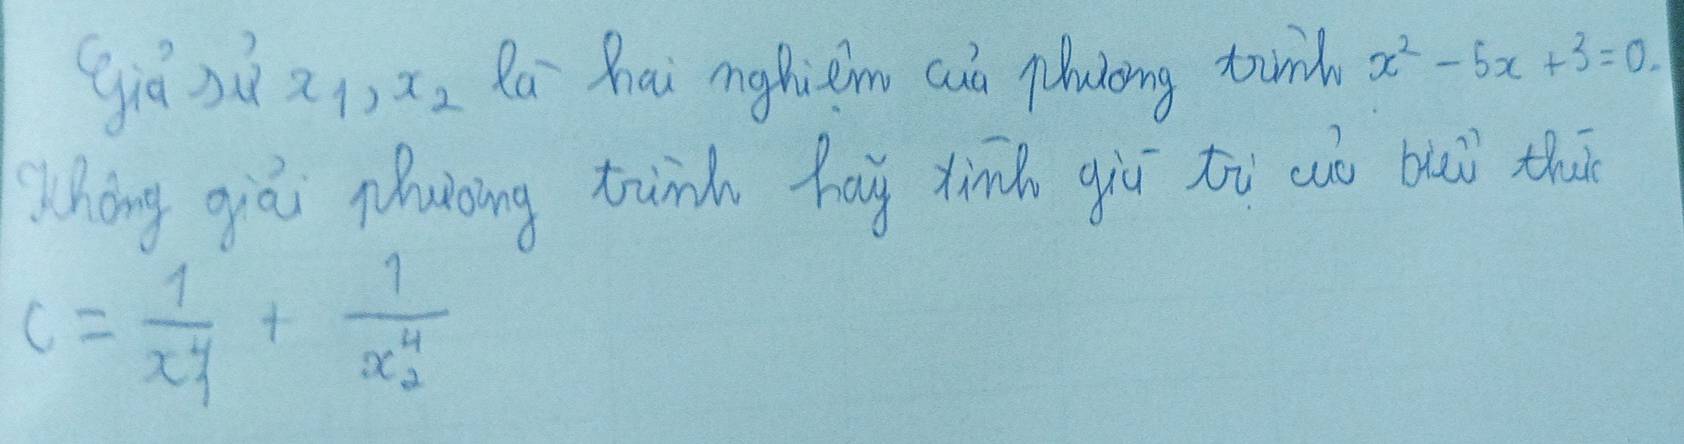 Giả sử x₁, x₂ là hai nghiệm của phương trình x² - 5x + 3 = 0.
Không giải phương trình hãy tính giá trị của biểu thức
C = 1/x₁⁴ + 1/x₂⁴